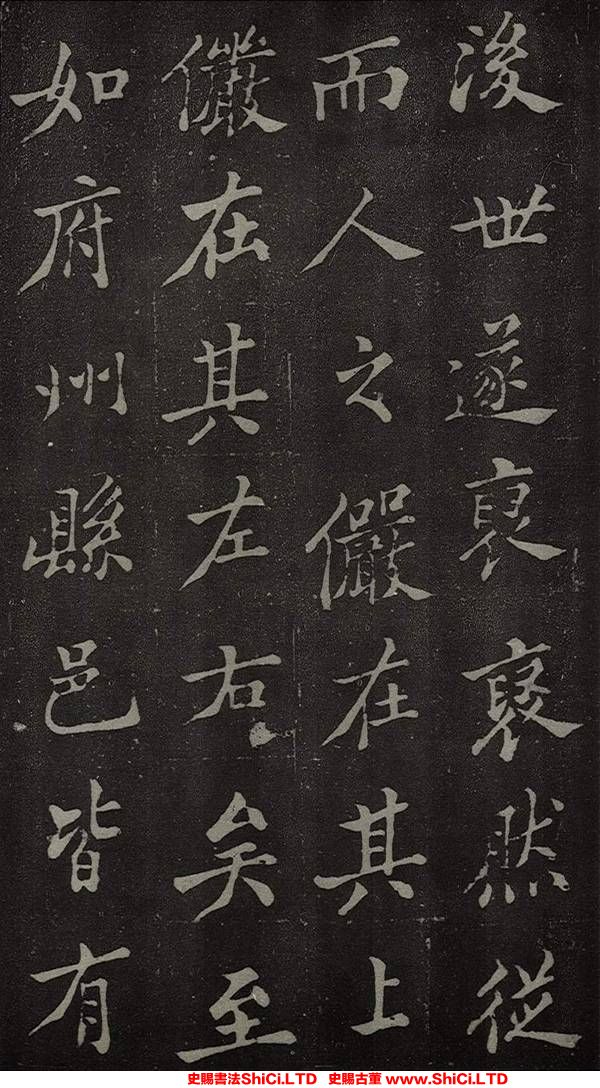 後世遂裒裒然從
而人之儼在其上
儼在其左右矣至
如府州縣邑皆有
史賜書法ShiCi.LTD 史賜古董 www.ShiCi.LTD